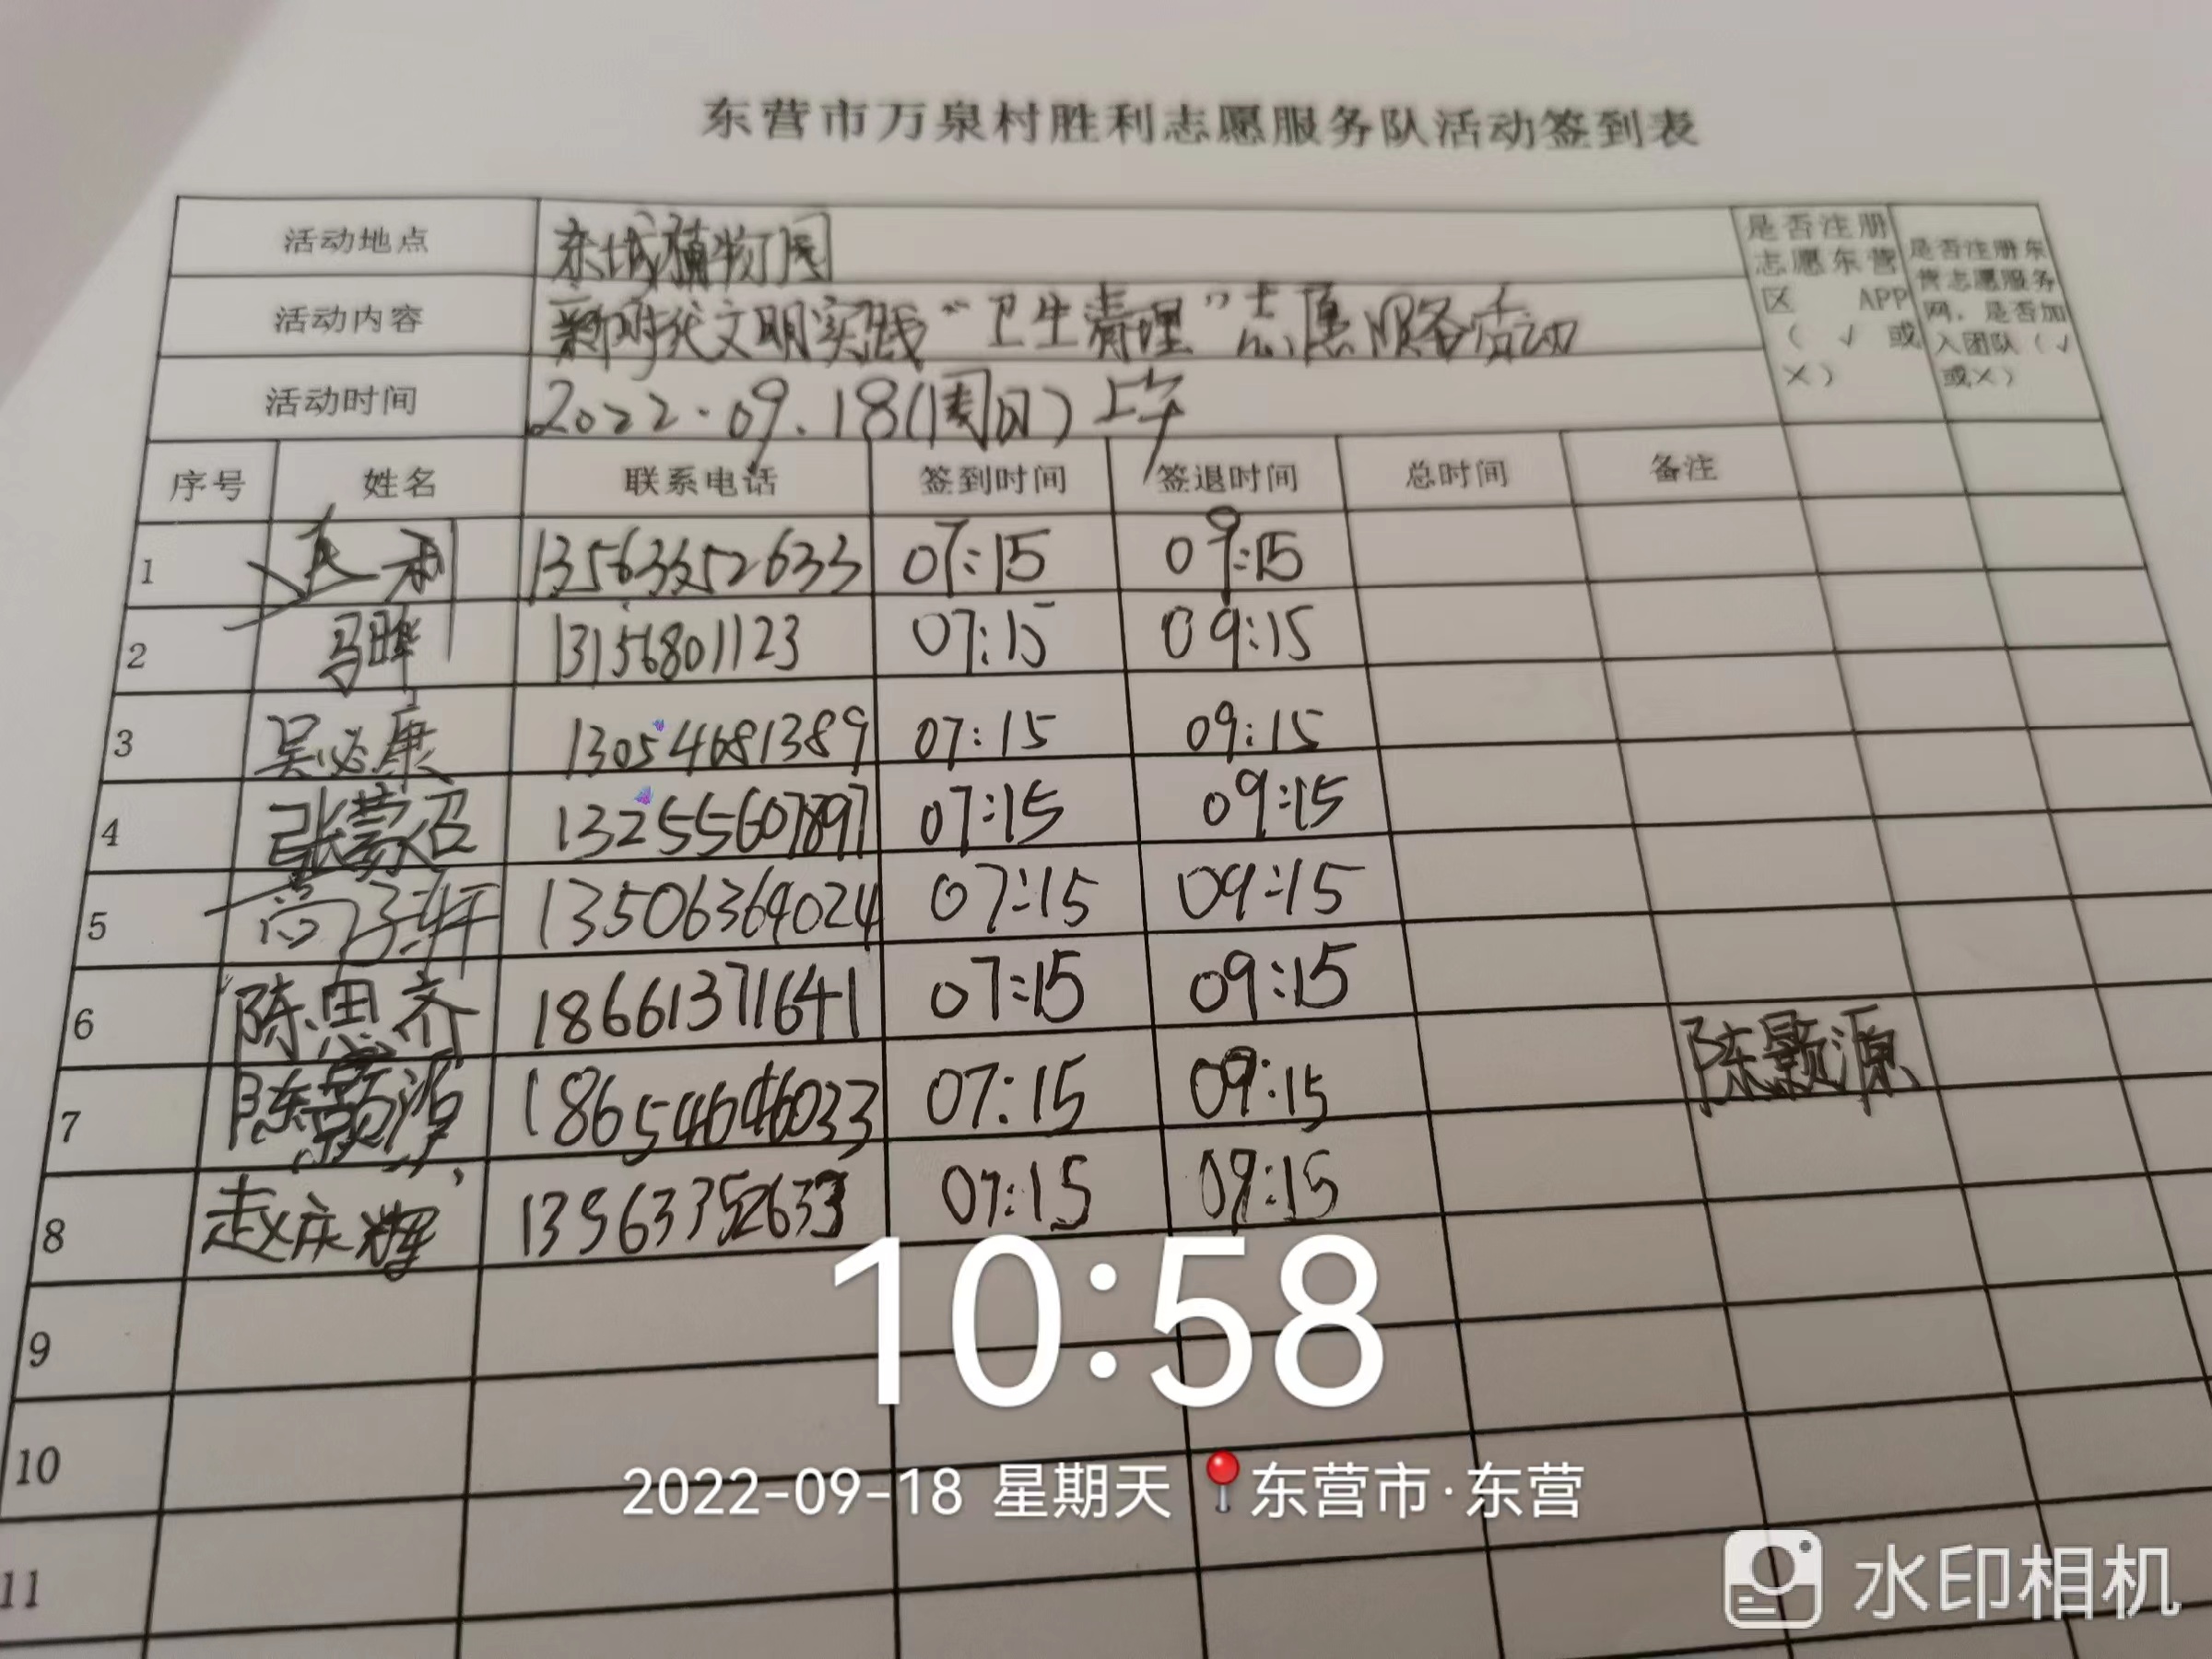 东营市万泉村胜利志愿服务队活动签到表
活动地点 东城植物园
活动内容 新时代文明实践“卫生清理”志愿服务活动
活动时间 2022.09.18(周日)上午
是否注册志愿东营区APP(√或×)
是否注册东营志愿服务网,是否加入团队(√或×)
序号 姓名 联系电话 签到时间 签退时间 总时间 备注
1 利 07:15 09:15
2 马晔 13156801123 07:15 09:15
3 吴必康 13054681389 07:15 09:15
4 张蒙召 13255607897 07:15 09:15
5 尚子轩 13506364024 07:15 09:15
6 陈思齐 18661371641 07:15 09:15
7 陈颢源 18654646033 07:15 09:15 陈颢源
8 赵庆辉 13563352633 07:15 09:15
9
10
11
10:58
2022-09-18 星期天 东营市·东营
水印相机